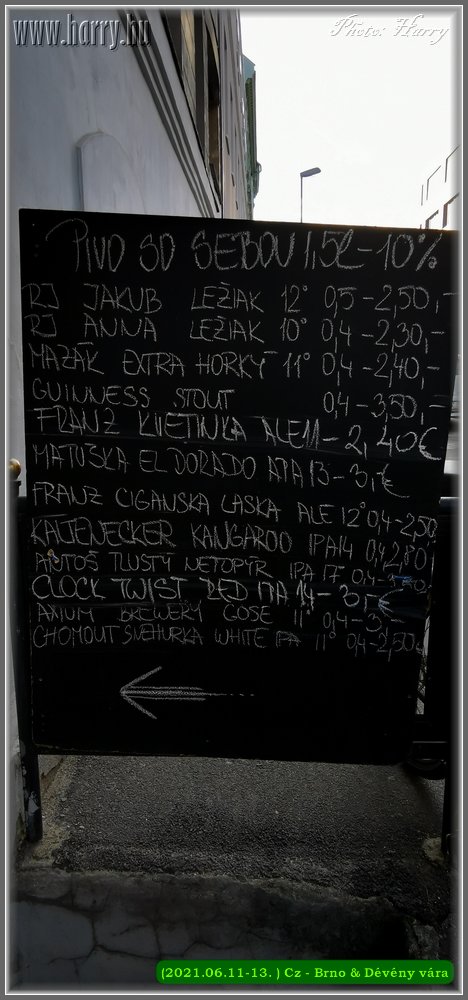 www.harry.hu
Photo: Harry
PIVO SO SEBOU 1,5L - 10%
RJ JAKUB LEŽIAK 12° 0,5 - 2,50,-
RJ ANNA LEŽIAK 10° 0,4 - 2,30,-
MAZÁK EXTRA HORKÝ 11° 0,4 - 2,40,-
GUINNESS STOUT 0,4 - 3,50,-
FRANZ KVETINKA ALE 11 - 2,40€
MATUŠKA ELDORADO APA 13 - 3,-€
FRANZ CIGANSKA LASKA ALE 12° 0,4 - 2,50
KALTENECKER KANGAROO IPA 14 0,4 2,80
ANTOŠ TLUSTÝ NETOPÝR IPA 17 0,4 -
CLOCK TWIST RED IPA 14 - 3,-€
AXIUM BREWERY GOSE 11° 0,4 - 3,-
CHOMOUT SNEHURKA WHITE IPA 11° 0,4 - 2,50
(2021.06.11-13. ) Cz - Brno & Dévény vára